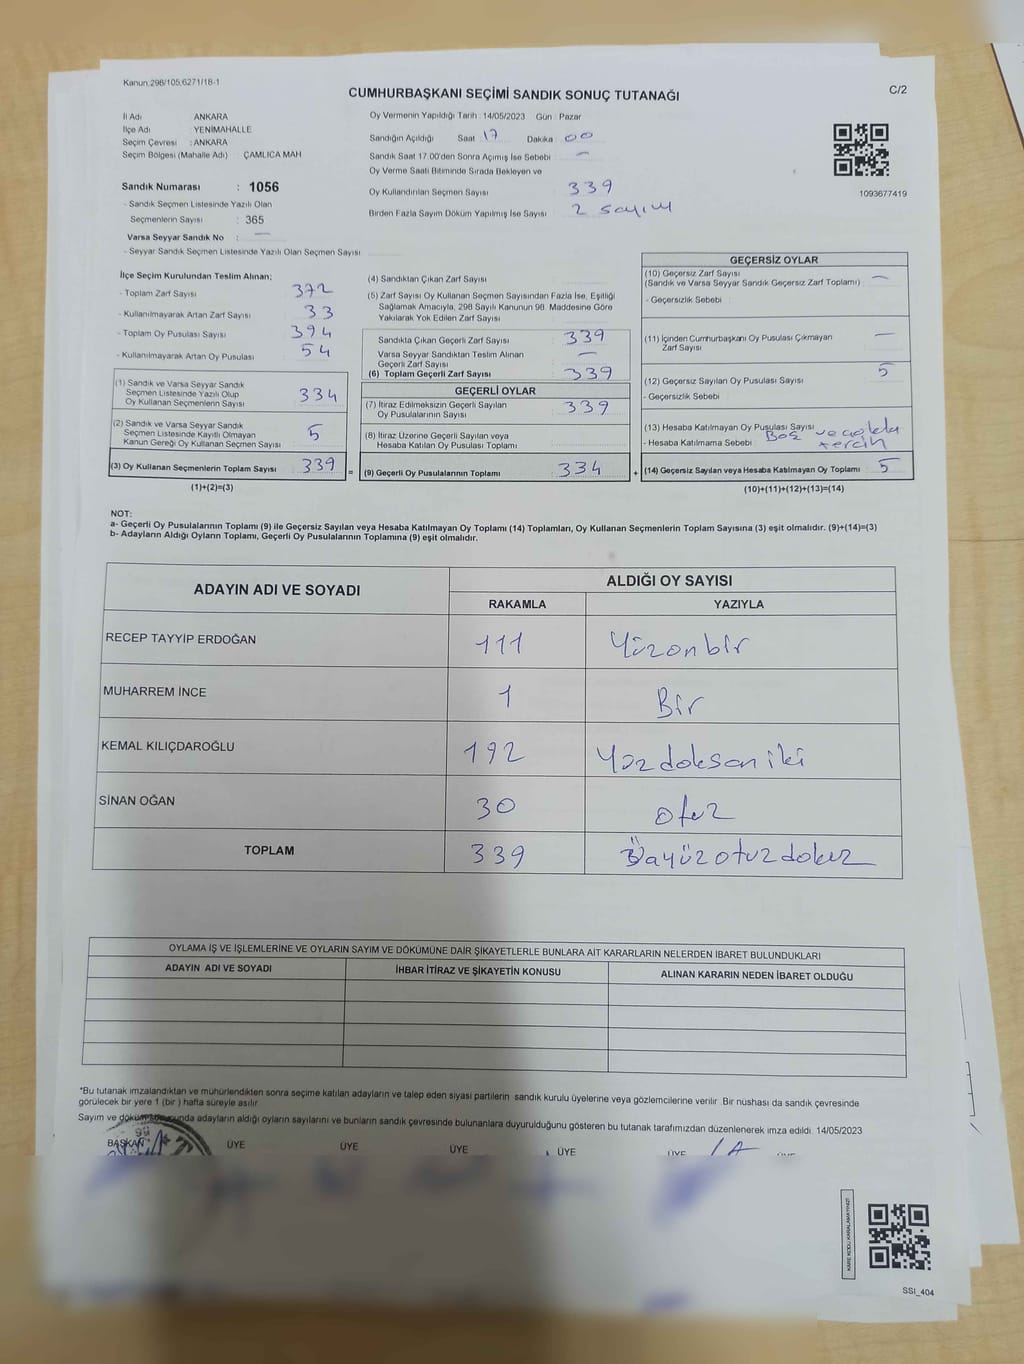 Kanun 298/105,6271/18-1
CUMHURBAŞKANI SEÇİMİ SANDIK SONUÇ TUTANAĞI
C/2
İl Adı ANKARA
İlçe Adı YENİMAHALLE
Seçim Çevresi : ANKARA
Seçim Bölgesi (Mahalle Adı) ÇAMLICA MAH
Sandık Numarası : 1056
- Sandık Seçmen Listesinde Yazılı Olan
Seçmenlerin Sayısı : 365
Varsa Seyyar Sandık No : —
- Seyyar Sandık Seçmen Listesinde Yazılı Olan Seçmen Sayısı
Oy Vermenin Yapıldığı Tarih : 14/05/2023 Gün : Pazar
Sandığın Açıldığı Saat 17 Dakika 00
Sandık Saat 17.00'den Sonra Açımış İse Sebebi —
Oy Verme Saati Bitiminde Sırada Bekleyen ve
Oy Kullandırılan Seçmen Sayısı 339
Birden Fazla Sayım Döküm Yapılmış İse Sayısı 2 sayım
1093677419
İlçe Seçim Kurulundan Teslim Alınan;
- Toplam Zarf Sayısı 372
- Kullanılmayarak Artan Zarf Sayısı 33
- Toplam Oy Pusulası Sayısı 394
- Kullanılmayarak Artan Oy Pusulası 54
(1) Sandık ve Varsa Seyyar Sandık
Seçmen Listesinde Yazılı Olup
Oy Kullanan Seçmenlerin Sayısı 334
(2) Sandık ve Varsa Seyyar Sandık
Seçmen Listesinde Kayıtlı Olmayan
Kanun Gereği Oy Kullanan Seçmen Sayısı 5
(3) Oy Kullanan Seçmenlerin Toplam Sayısı 339
(1)+(2)=(3)
=
(4) Sandıktan Çıkan Zarf Sayısı
(5) Zarf Sayısı Oy Kullanan Seçmen Sayısından Fazla İse, Eşitliği
Sağlamak Amacıyla, 298 Sayılı Kanunun 98. Maddesine Göre
Yakılarak Yok Edilen Zarf Sayısı
Sandıkta Çıkan Geçerli Zarf Sayısı 339
Varsa Seyyar Sandıktan Teslim Alınan
Geçerli Zarf Sayısı —
(6) Toplam Geçerli Zarf Sayısı 339
GEÇERLİ OYLAR
(7) İtiraz Edilmeksizin Geçerli Sayılan
Oy Pusulalarının Sayısı 339
(8) İtiraz Üzerine Geçerli Sayılan veya
Hesaba Katılan Oy Pusulası Toplamı
(9) Geçerli Oy Pusulalarının Toplamı 334
+
GEÇERSİZ OYLAR
(10) Geçersiz Zarf Sayısı
(Sandık ve Varsa Seyyar Sandık Geçersiz Zarf Toplamı) —
- Geçersizlik Sebebi
(11) İçinden Cumhurbaşkanı Oy Pusulası Çıkmayan
Zarf Sayısı —
(12) Geçersiz Sayılan Oy Pusulası Sayısı 5
- Geçersizlik Sebebi
(13) Hesaba Katılmayan Oy Pusulası Sayısı
- Hesaba Katılmama Sebebi Boş tercih
(14) Geçersiz Sayılan veya Hesaba Katılmayan Oy Toplamı 5
(10)+(11)+(12)+(13)=(14)
NOT:
a- Geçerli Oy Pusulalarının Toplamı (9) ile Geçersiz Sayılan veya Hesaba Katılmayan Oy Toplamı (14) Toplamları, Oy Kullanan Seçmenlerin Toplam Sayısına (3) eşit olmalıdır. (9)+(14)=(3)
b- Adayların Aldığı Oyların Toplamı, Geçerli Oy Pusulalarının Toplamına (9) eşit olmalıdır.
ADAYIN ADI VE SOYADI
ALDIĞI OY SAYISI
RAKAMLA YAZIYLA
RECEP TAYYİP ERDOĞAN 111 Yüzonbir
MUHARREM İNCE 1 Bir
KEMAL KILIÇDAROĞLU 192 Yüzdoksaniki
SİNAN OĞAN 30 otuz
TOPLAM 339
OYLAMA İŞ VE İŞLEMLERİNE VE OYLARIN SAYIM VE DÖKÜMÜNE DAİR ŞİKAYETLERLE BUNLARA AİT KARARLARIN NELERDEN İBARET BULUNDUKLARI
ADAYIN ADI VE SOYADI İHBAR İTİRAZ VE ŞİKAYETİN KONUSU ALINAN KARARIN NEDEN İBARET OLDUĞU
*Bu tutanak imzalandıktan ve mühürlendikten sonra seçime katılan adayların ve talep eden siyasi partilerin sandık kurulu üyelerine veya gözlemcilerine verilir. Bir nüshası da sandık çevresinde
görülecek bir yere 1 (bir ) hafta süreyle asılır.
Sayım ve döküm sonunda adayların aldığı oyların sayılarını ve bunların sandık çevresinde bulunanlara duyurulduğunu gösteren bu tutanak tarafımızdan düzenlenerek imza edildi. 14/05/2023
BAŞKAN ÜYE ÜYE ÜYE ÜYE ÜYE
KARE KODU KARALAMAYINIZ!
SSI_404